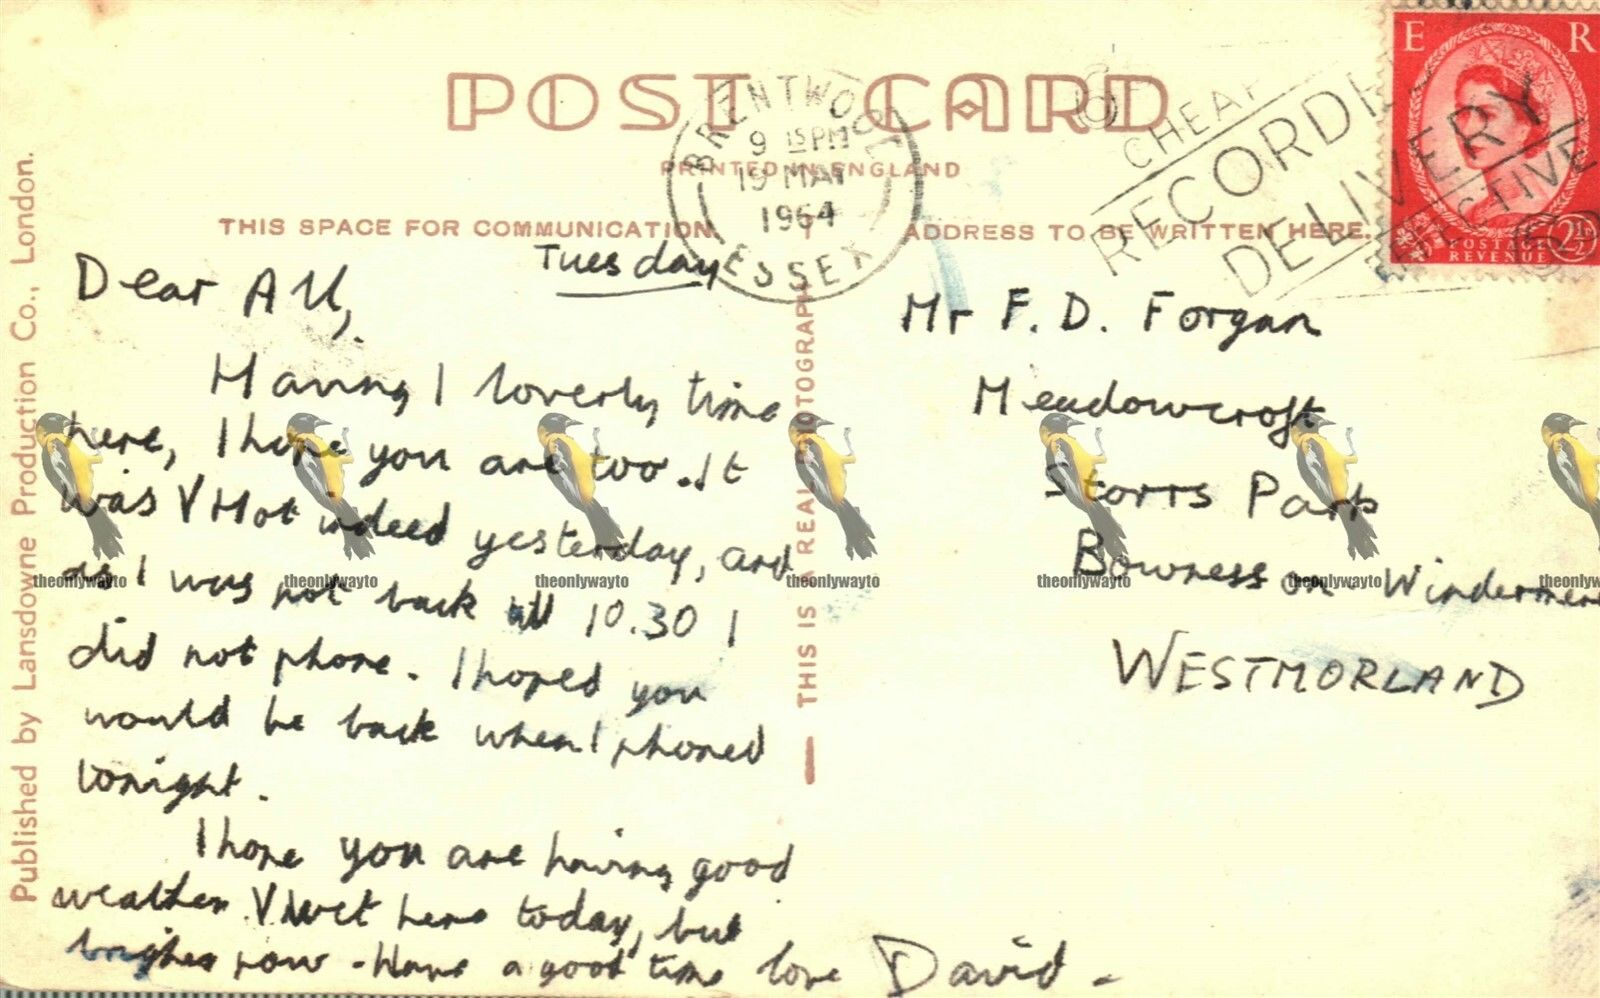 POST CARD
PRINTED IN ENGLAND
THIS SPACE FOR COMMUNICATION.
ADDRESS TO BE WRITTEN HERE.
BRENTWOOD
9 15 PM
19 MAY
1964
ESSEX
CHEAP
RECORDED
DELIVERY
EFFECTIVE
E R
POSTAGE
REVENUE
2½
Tuesday
Dear All,
Having I loverly time
here, I hope you are too. It
was V Hot indeed yesterday, and
as I was not back till 10.30 I
did not phone. I hoped you
would be back when I phoned
tonight.
I hope you are having good
weather. V wet here today, but
brighter now - Have a good time love David -
Mr F. D. Forgan
Meadowcroft
Storrs Park
Bowness on Windermere
WESTMORLAND
Published by Lansdowne Production Co., London.
THIS IS A REAL PHOTOGRAPH
theonlywayto
theonlywayto
theonlywayto
theonlywayto
theonlywayto
theonlywayto
theonlyw